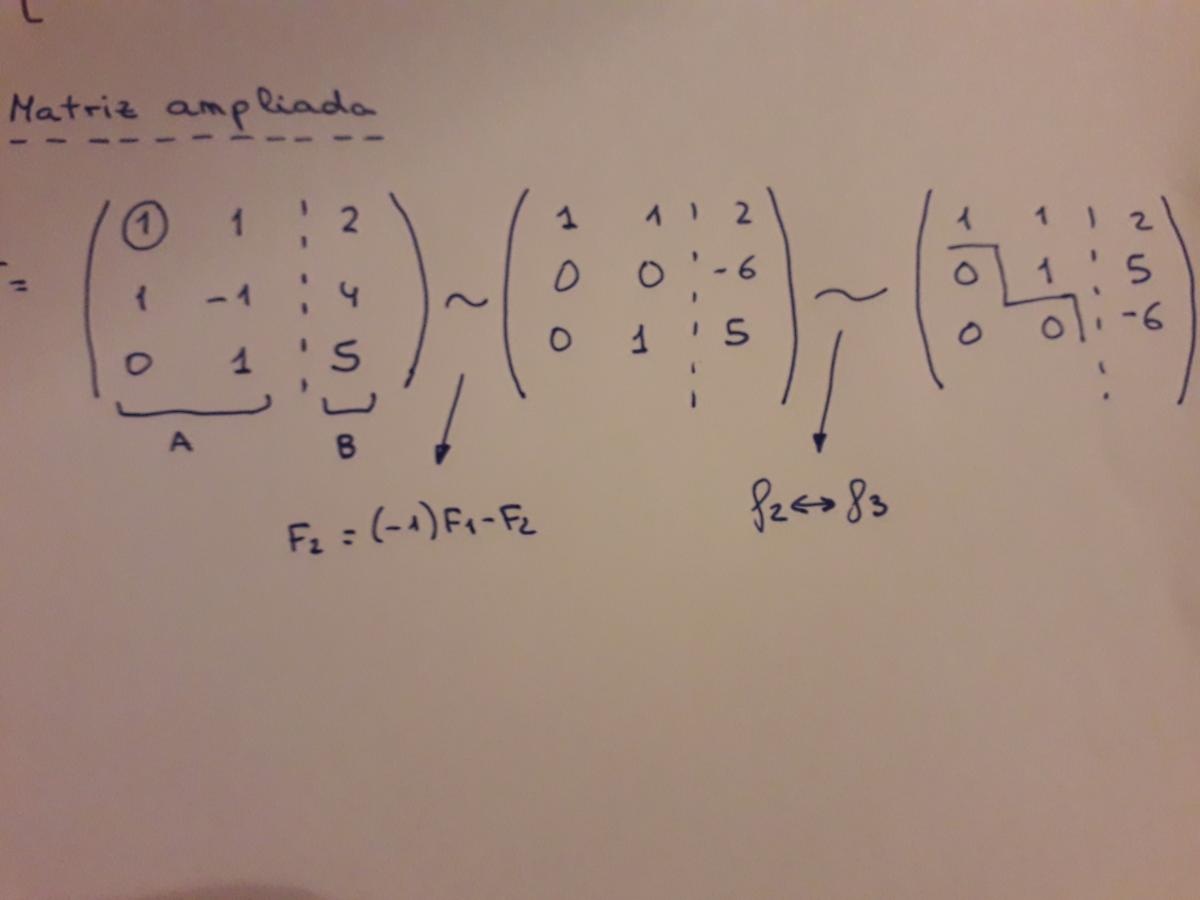 Matriz ampliada
= ( 1 1 ¦ 2 ) ~ ( 1 1 ¦ 2 ) ~ ( 1 1 ¦ 2 )
1 -1 ¦ 4 0 0 ¦ -6 0 1 ¦ 5
0 1 ¦ 5 0 1 ¦ 5 0 0 ¦ -6
A B
F₂ = (-1)F₁-F₂ f₂↔f₃